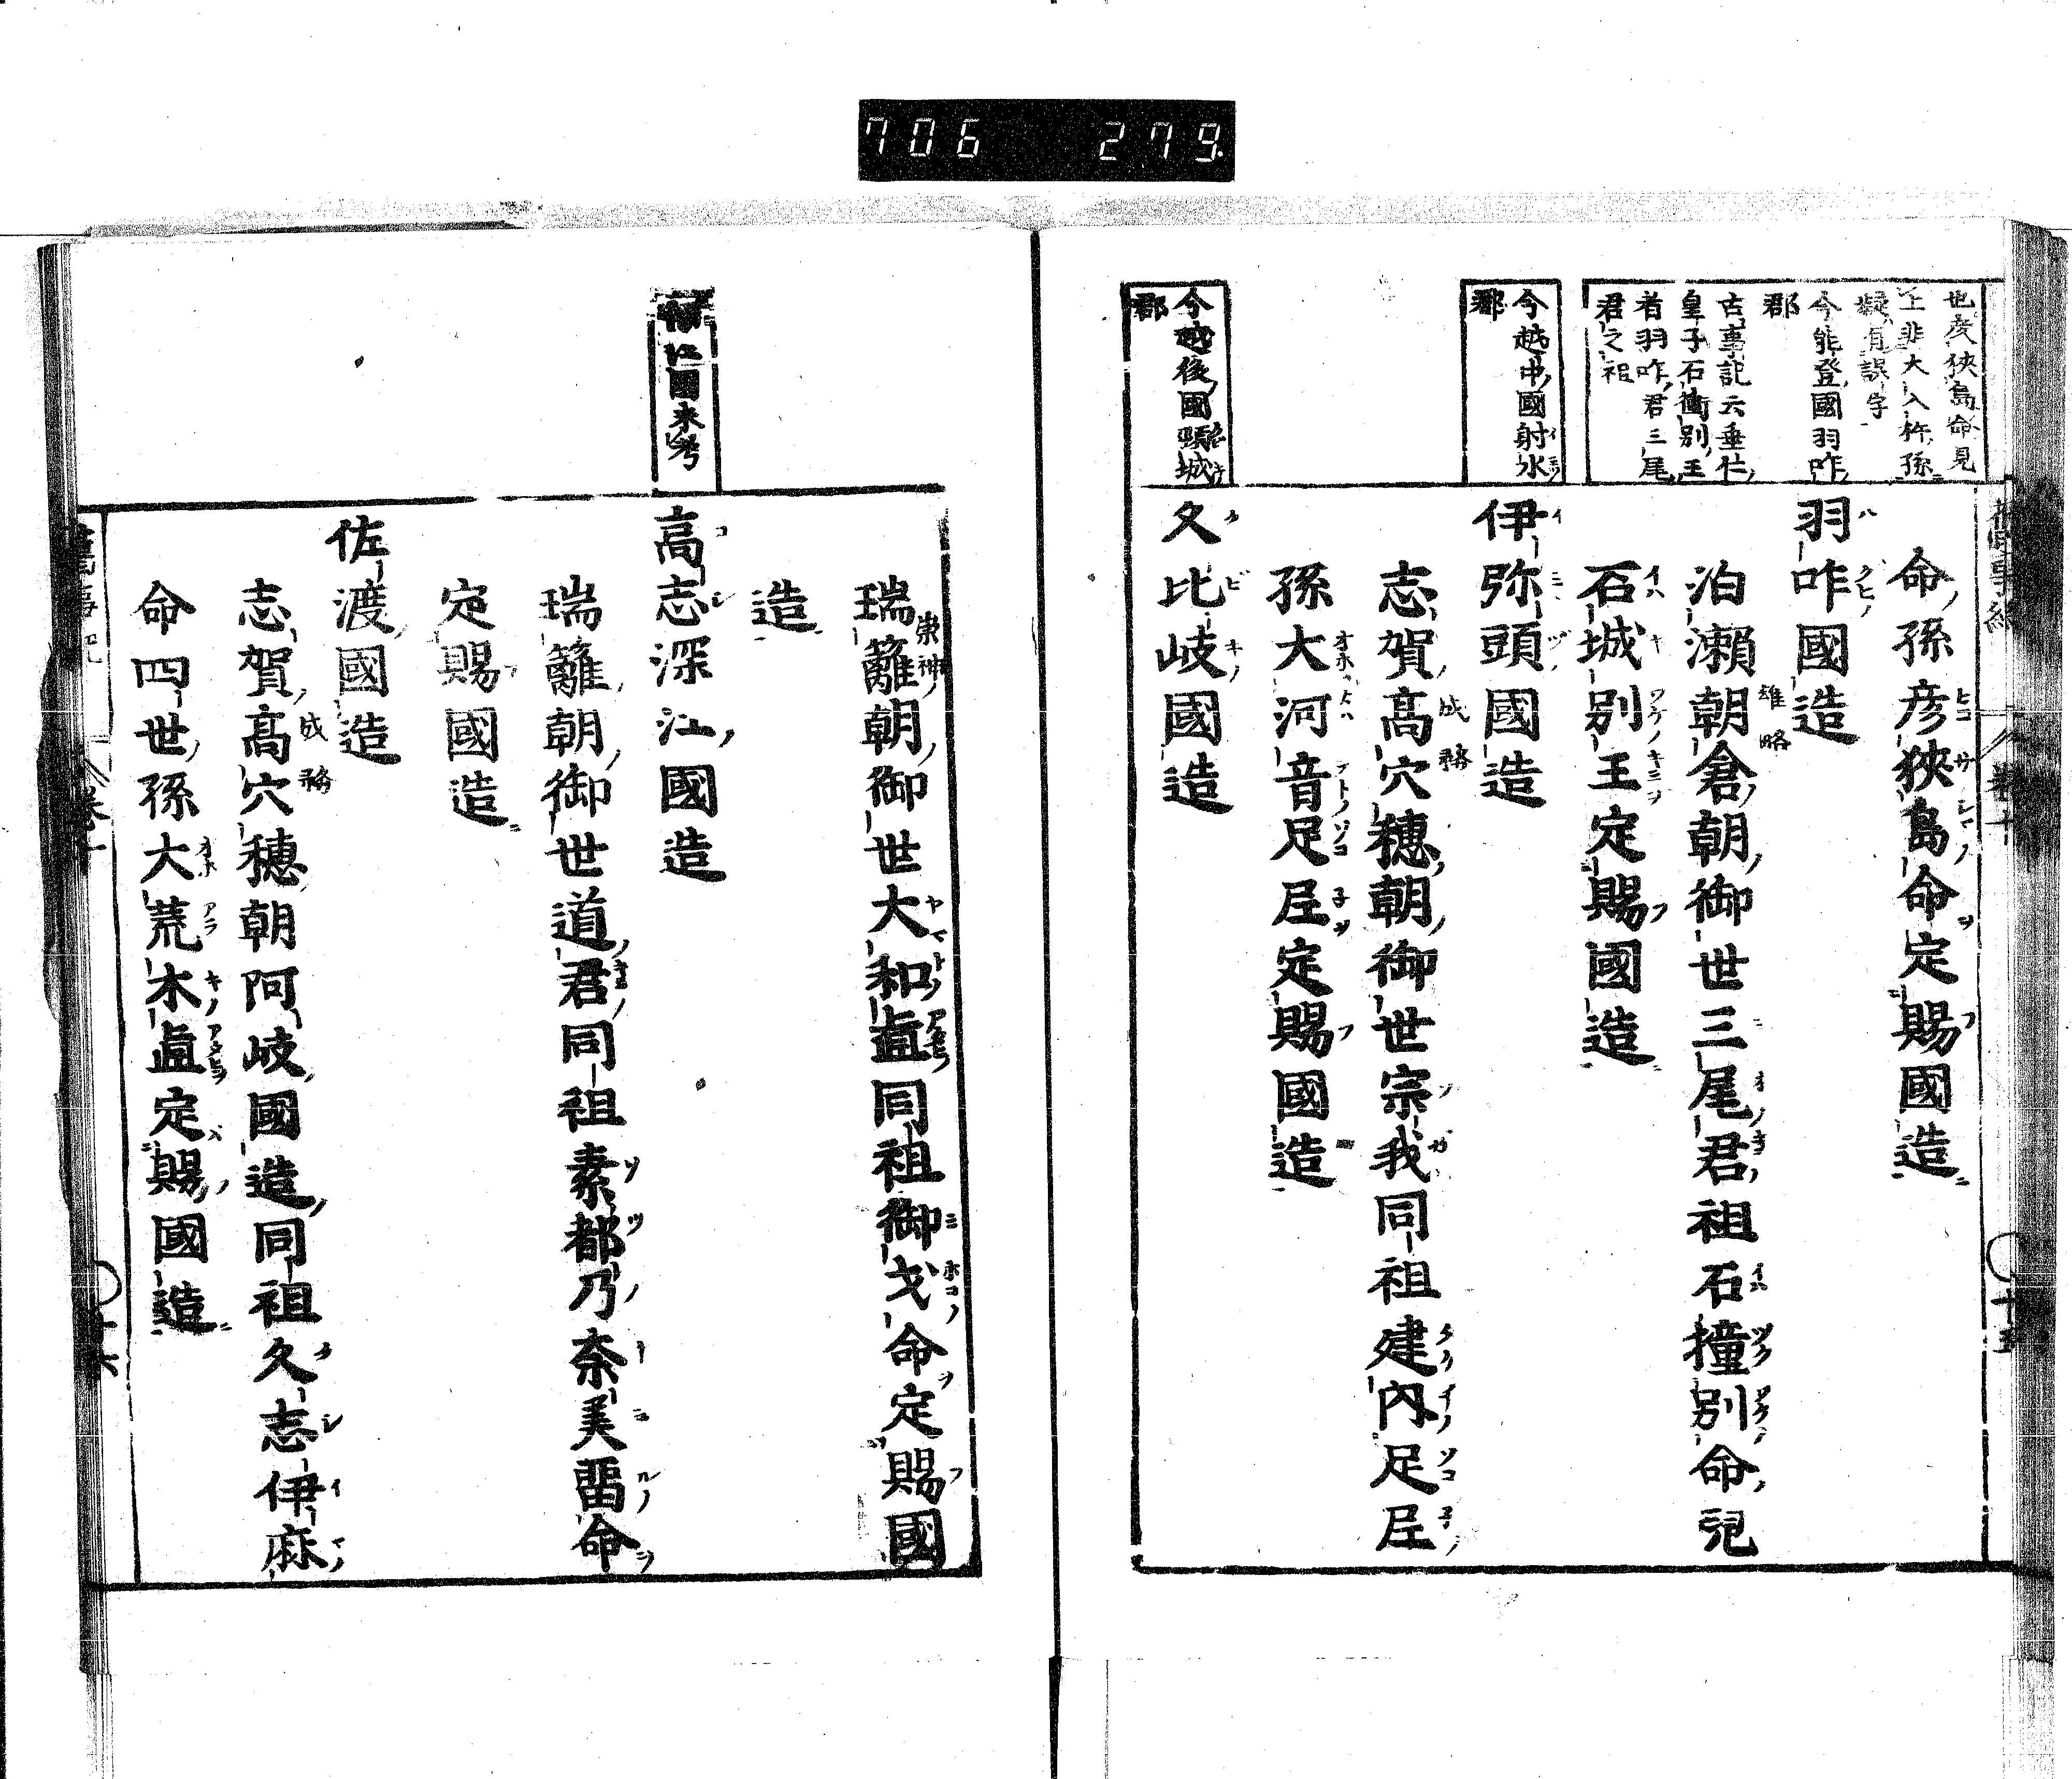 706 279
也彦狹島命見
上非大入杵孫
疑有誤字
今能登國羽咋
郡
古事記云垂仁
皇子石衝別王
者羽咋君三尾
君之祖
今越中國射水
郡
今越後國頸城
郡
命孫彦狹島命定賜國造
羽咋國造
泊瀬朝倉朝御世三尾君祖石撞別命兒
雄略
石城別王定賜國造
伊弥頭國造
志賀高穴穗朝御世宗我同祖建內足尼
成務
孫大河音足尼定賜國造
久比岐國造
十五
深江國未考
瑞籬朝御世大和直同祖御戈命定賜國
崇神
造
高志深江國造
瑞籬朝御世道君同祖素都乃奈美留命
定賜國造
佐渡國造
志賀高穴穗朝阿岐國造同祖久志伊麻
成務
命四世孫大荒木直定賜國造
十六